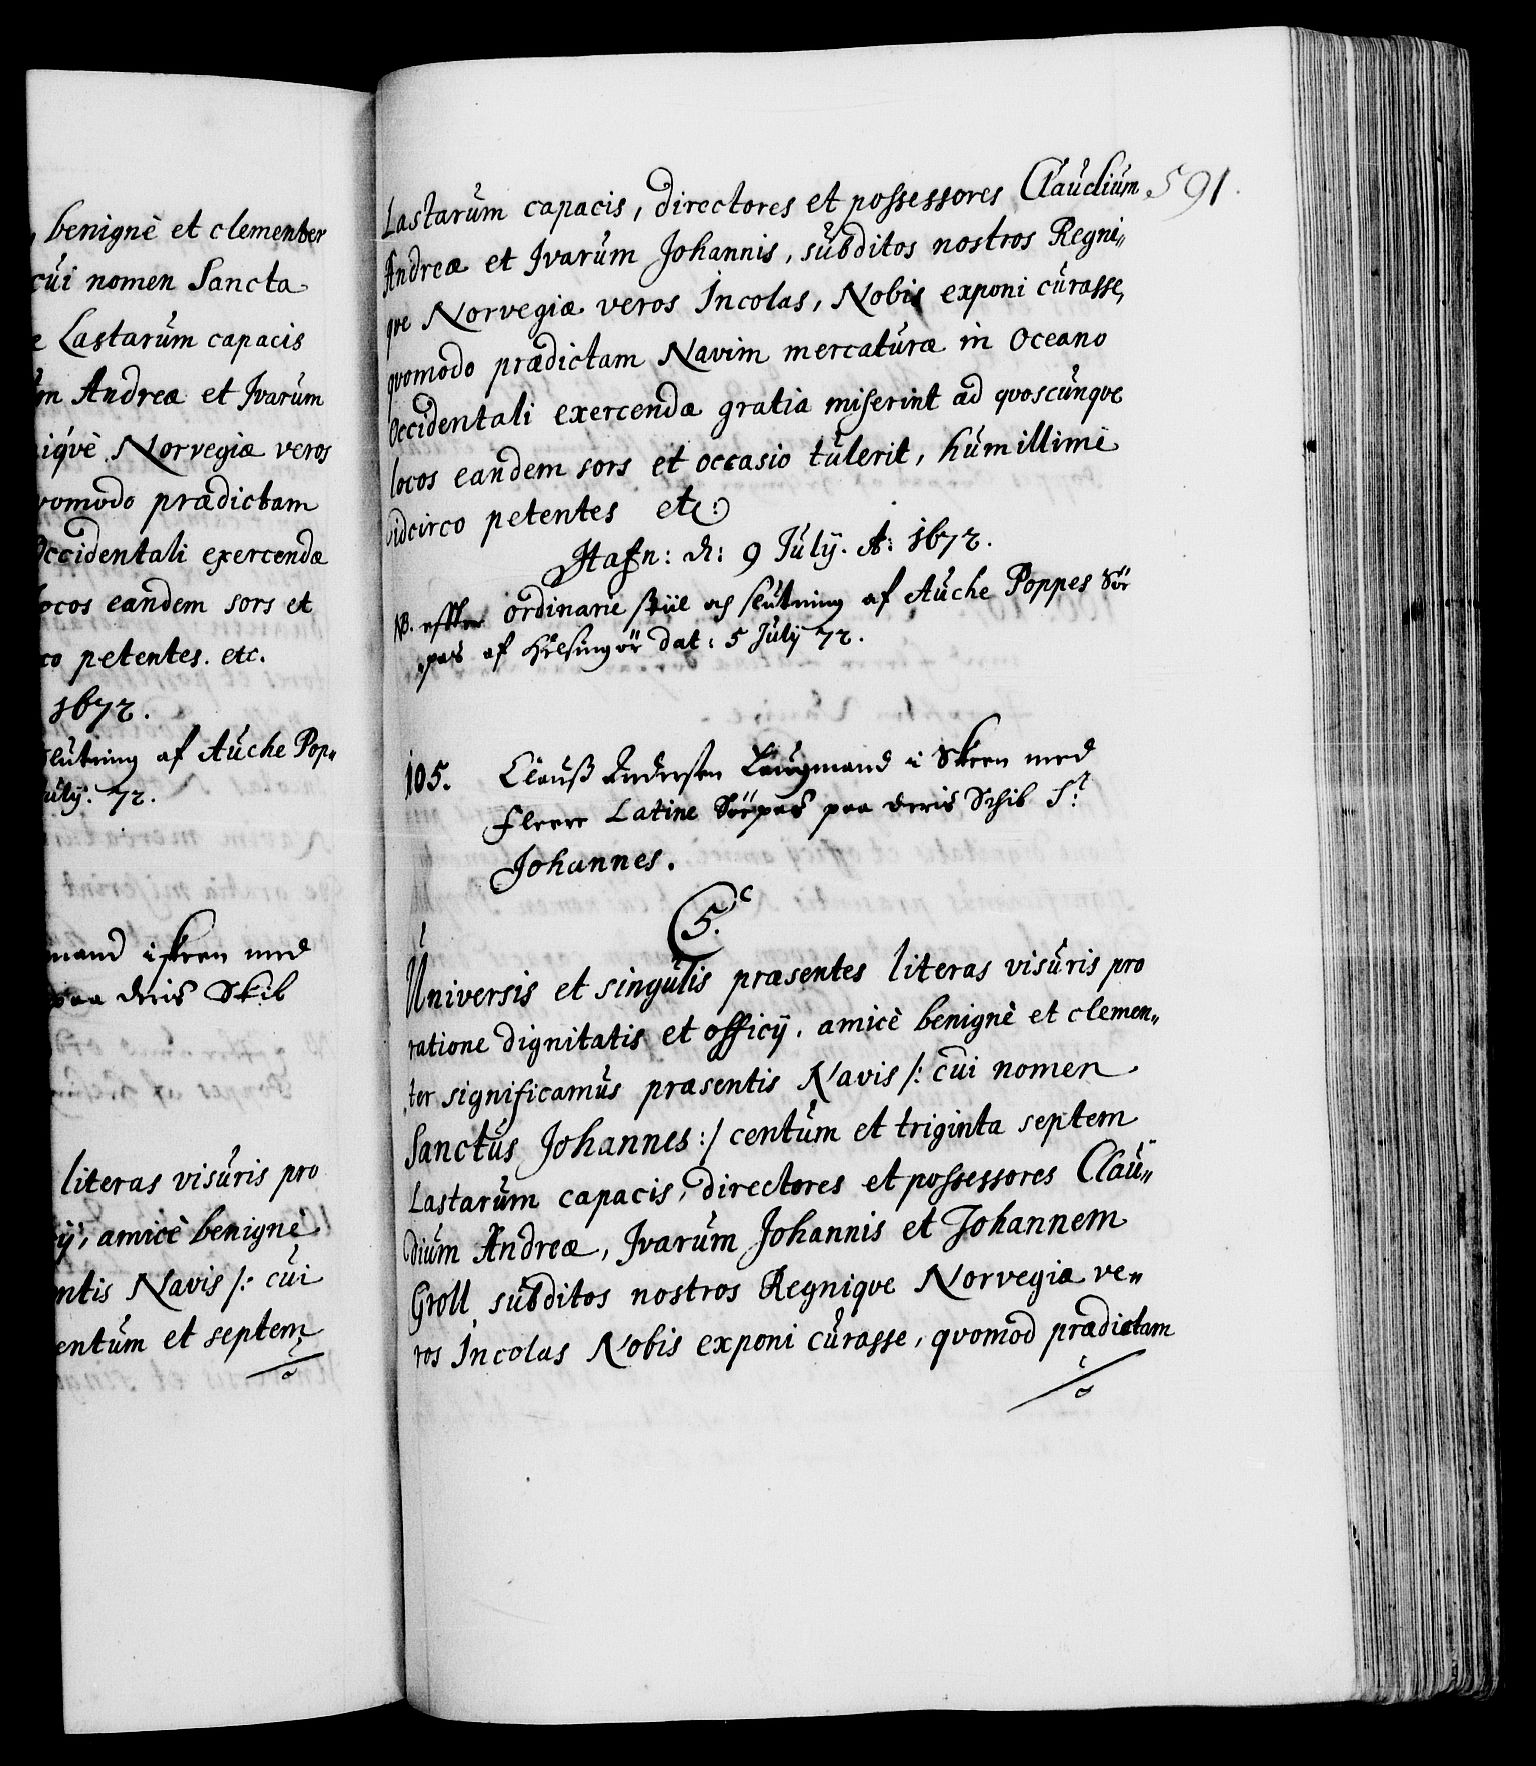 benignè et clementer
cui nomen Sancta
Lastarum capacis
Andreæ et Ivarum
Norvegiæ veros
prædictam
Occidentali exercendæ
locos eandem sors et
petentes. etc.
1672.
slutning af Auche Pop„
July. 72.
i Skeen med
paa deris Skib
literas visuris pro
amicè benignè
Navis /: cui
centum et septem
591.
Lastarum capacis, directores et possessores Claudium
Andreæ et Ivarum Johannis, subditos nostros Regni„
qve Norvegiæ veros Incolas, Nobis exponi curasse,
qvomodo prædictam Navim mercaturæ in Oceano
Occidentali exercendæ gratia miserint ad qvoscunqve
locos eandem sors et occasio tulerit, humillimè
idcirco petentes etc:
Hafn: d: 9 July. A: 1672.
NB. effter ordinarie stiil och slutning af Auche Poppes Sør
pas af Helsingør dat: 5 July 72.
105. Clauß Andersen Laugmand i Skeen med
Fleere Latine Søepas paa deris Schib St
Johannes.
C5.c
Universis et singulis præsentes literas visuris pro
ratione dignitatis et officij. amicè benignè et clemen„
ter significamus præsentis Navis /: cui nomen
Sanctus Johannes :/ centum et triginta septem
Lastarum capacis, directores et possessores Clau„
dium Andreæ, Ivarum Johannis et Johannem
Groll subditos nostros Regniqve Norvegiæ ve„
ros Incolas Nobis exponi curasse, qvomod prædictam